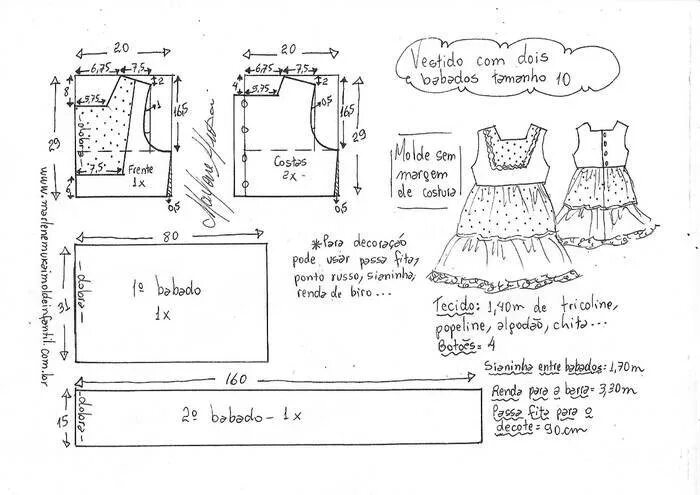 Vestido com dois
e babados tamanho 10
20
6,75
7,5
8
2
1
16,5
5,75
29
dobra
7,5
Frente
1x
6
0,5
20
6,75
7,5
4
2
5,75
0,5
16,5
29
Costas
2x
0,5
Molde sem
margem
de costura
www.marlenemukaimoldeinfantil.com.br
80
31
-dobra-
1º babado
1x
*Para decoração
pode usar passa fita,
ponto russo, sianinha,
renda de biro...
Tecido: 1,40m de tricoline,
popeline, algodão, chita...
Botões= 4
Sianinha entre babados= 1,70m
Renda para a barra= 3,30m
Passa fita para o
decote= 90cm
160
15
-dobra-
2º babado - 1x